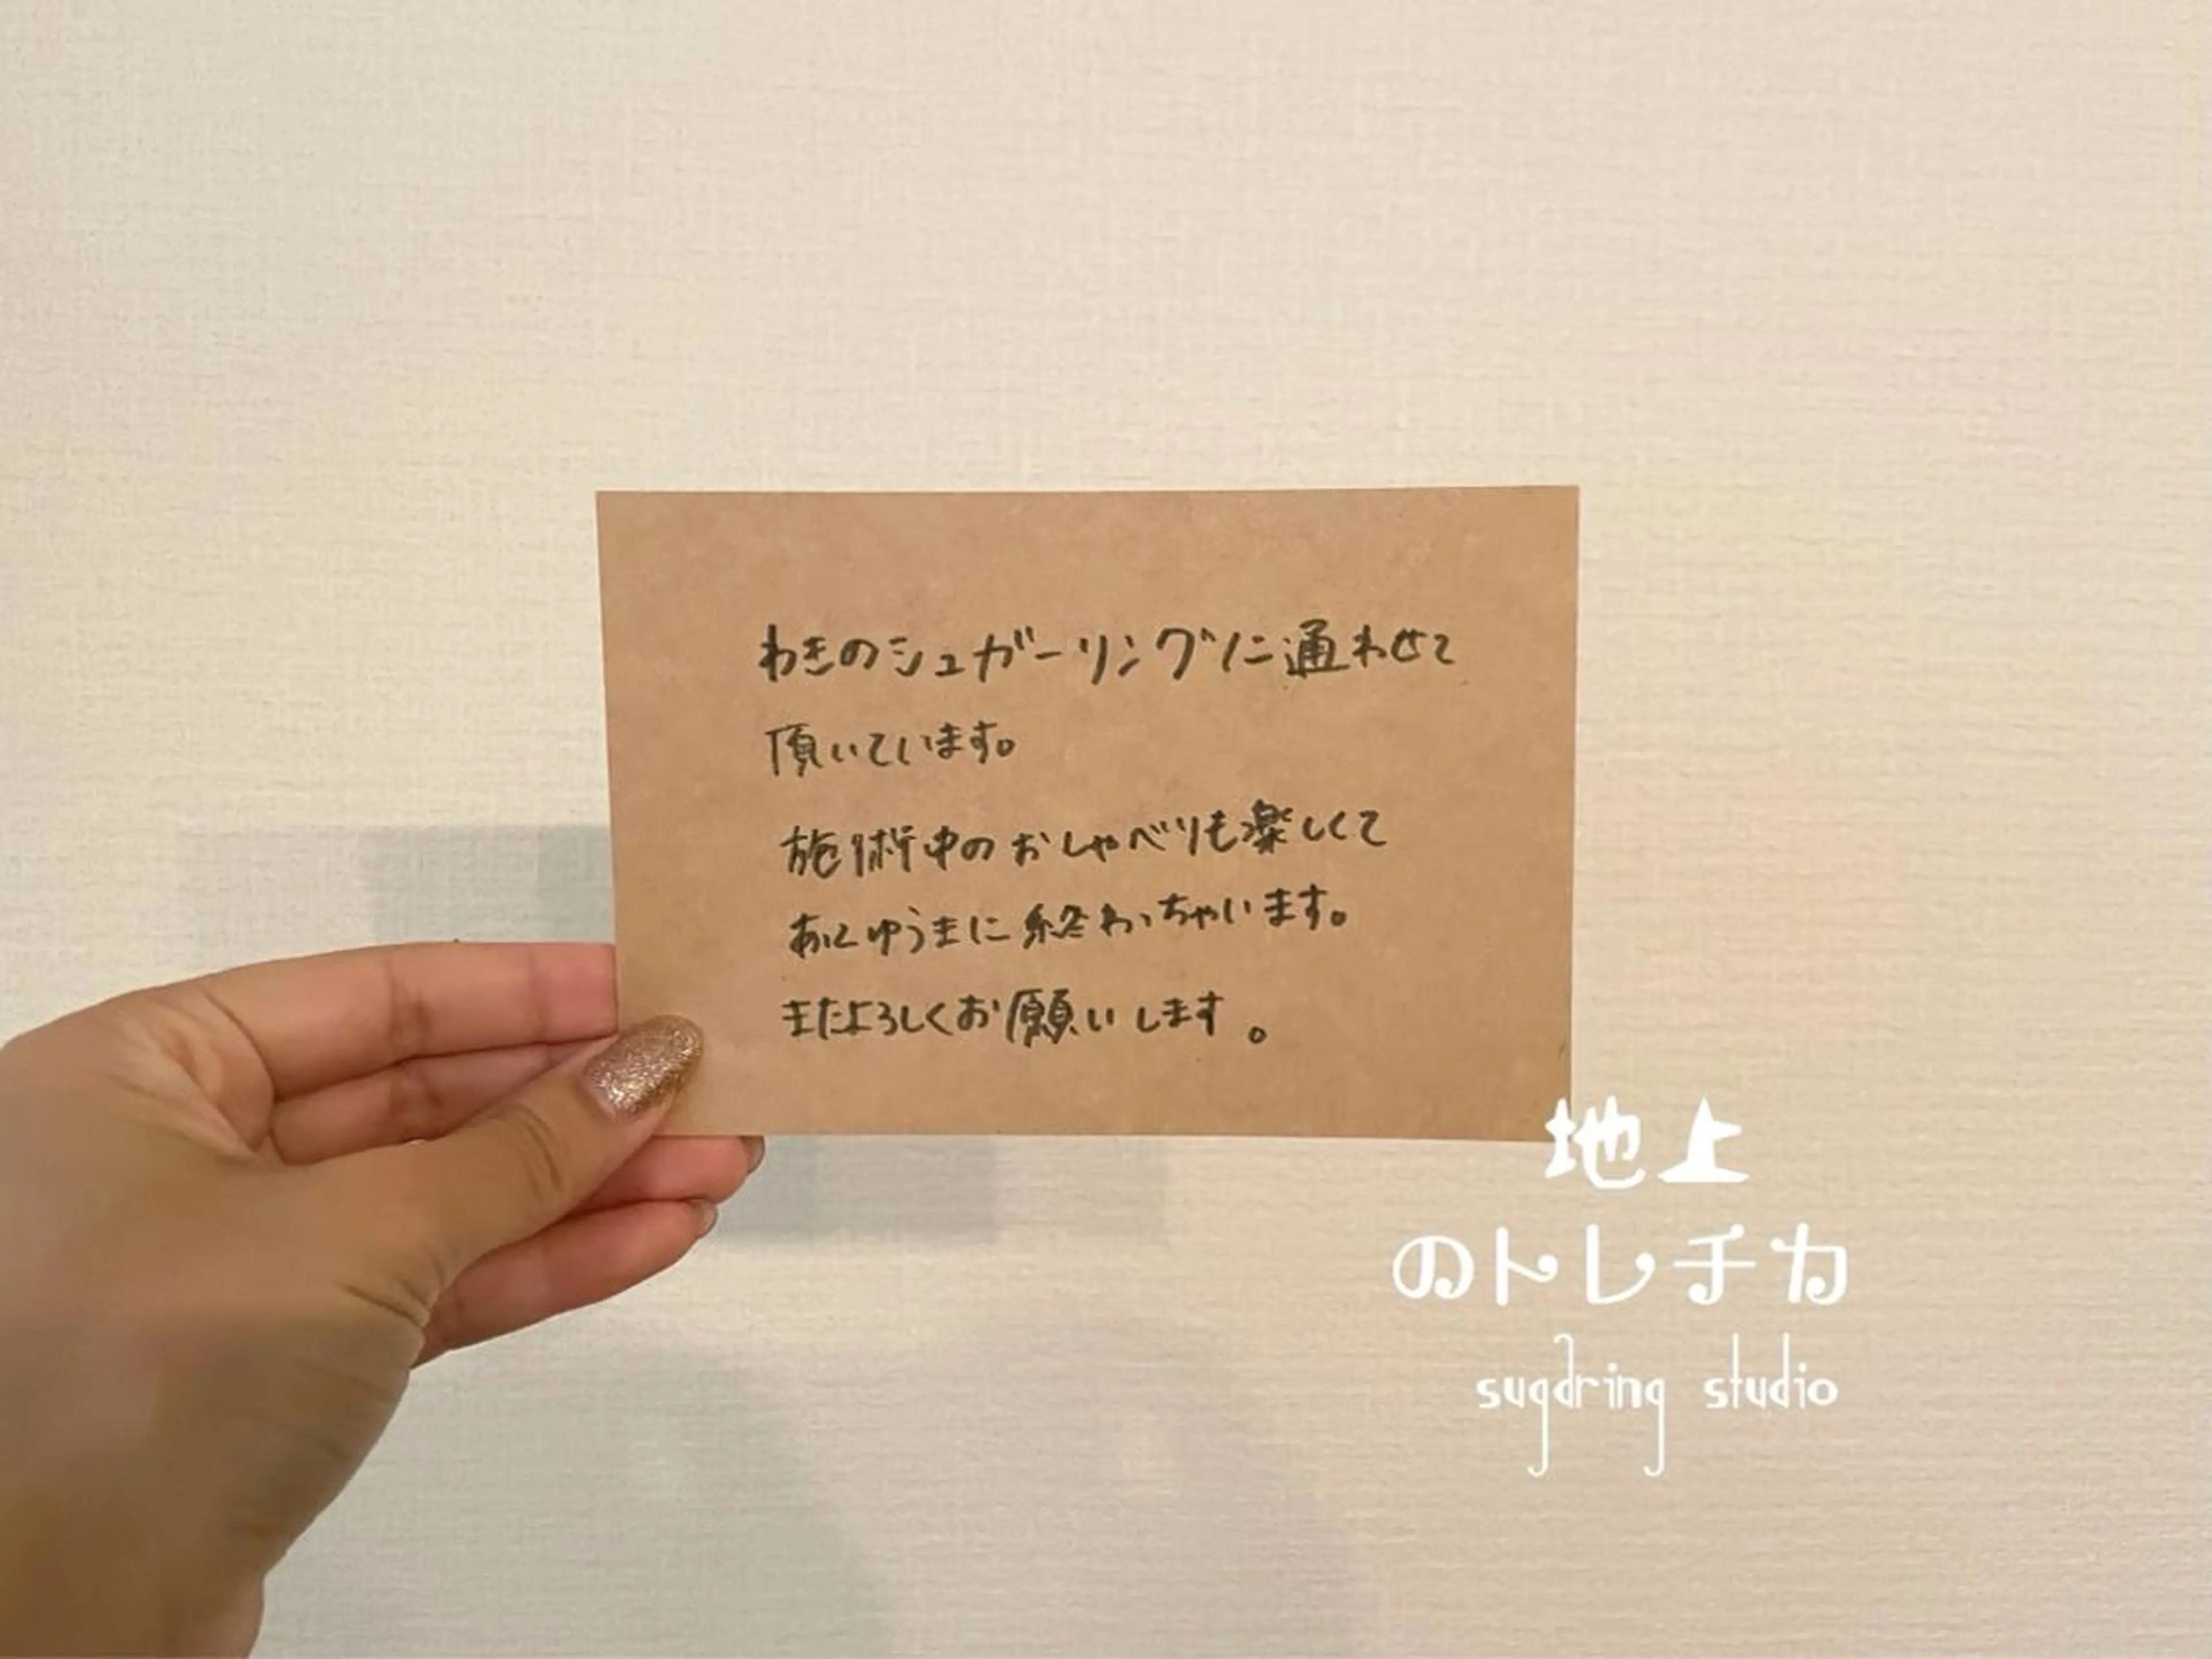 わきのシュガーリングに通わせて
頂いています。
施術中のおしゃべりも楽しくて
あとゆうまに終わっちゃいます。
またよろしくお願いします。
地上
のトレチカ
sugaring studio